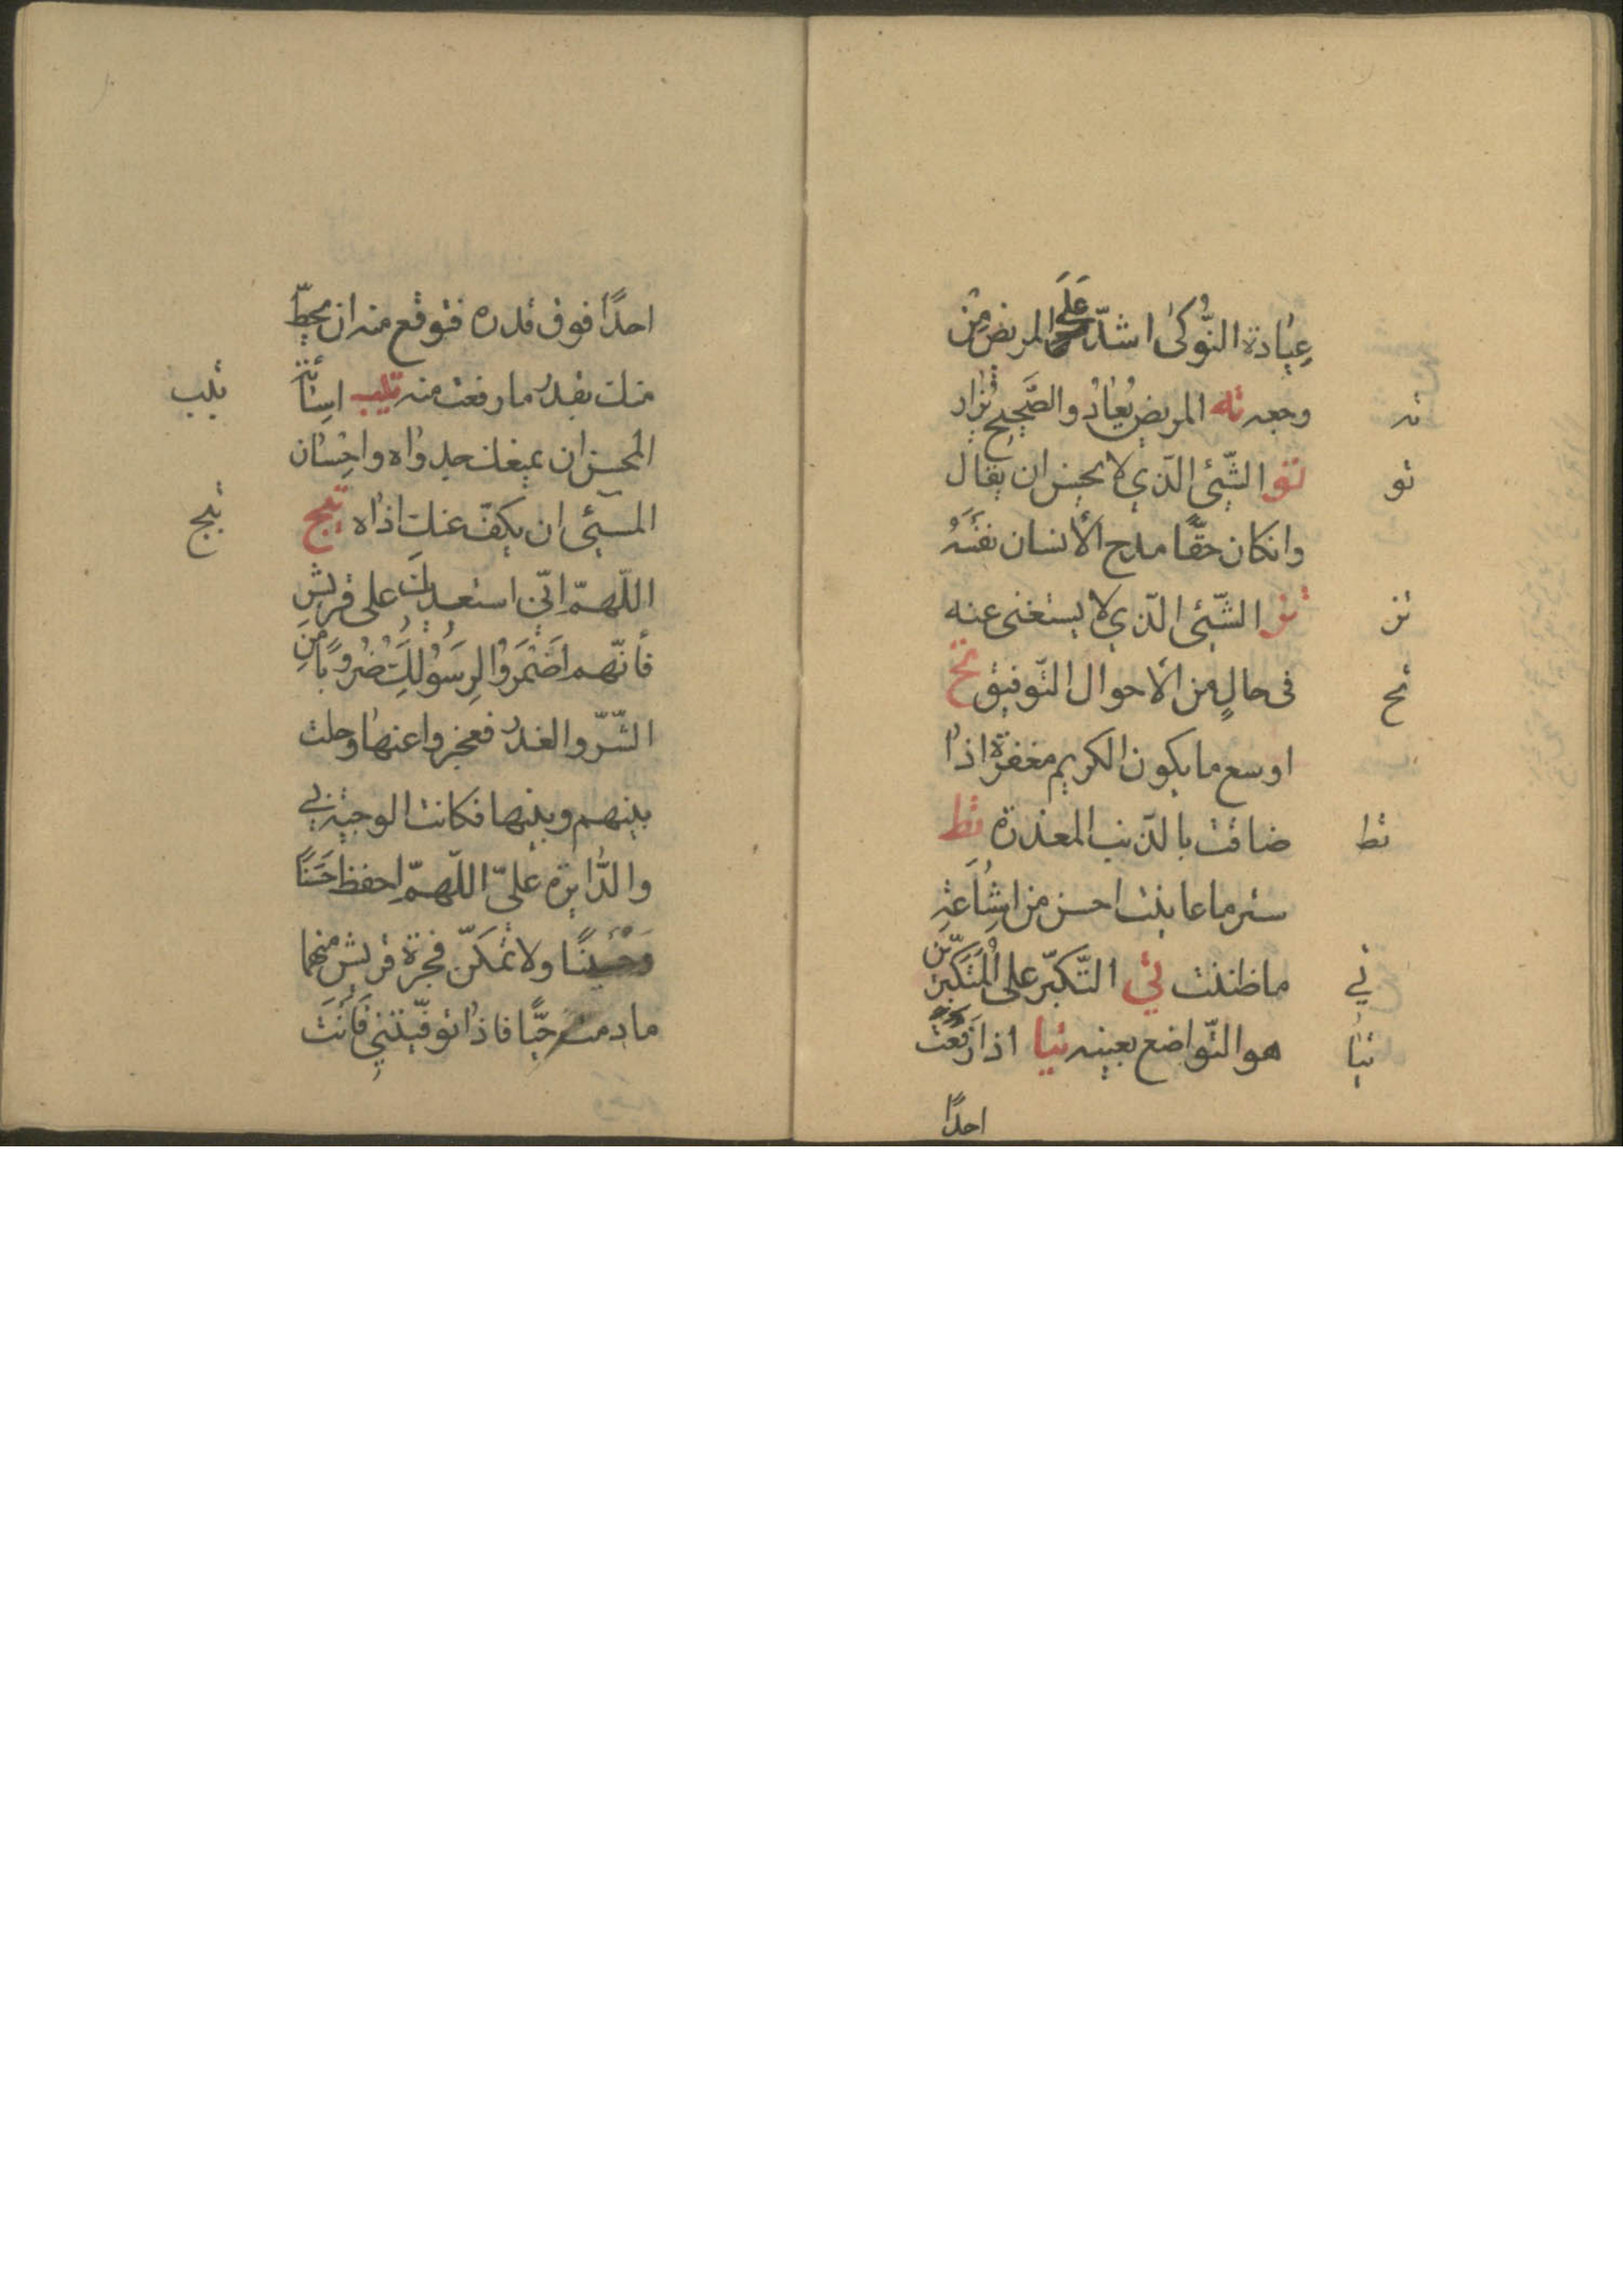 عِيادة النُّوكى اشدّ عَلَى المريض مِن
وجعه ته المريض يُعادُ والصَّحيح يُزار
ته
تو الشّيئ الّذي لا يحسن ان يقال
تو
وانكان حقًّا مدح الأنسان نفسَهُ
تز الشّيئ الّذي لا يستغنى عنه
تز
فى حالٍ من الاحوال التّوفيق تح
تح
اوسع ما يكون الكريم مغفرة اذا
ضاقت بالذّنب المعذرة تط
تط
ستر ما عاينت احسن من اشِاعَتِه
ما ظننت تي التّكبّر على المُتَكَبّرين
تي
هو التّواضع بعينه تيا اذا رَفَعتَ
تيا
احدًا
احدًا فوق قدره فتوقّع منه ان يحطّ
منك بقدر ما رفعت منه تيب اسِائة
تيب
المحسن ان يمنعك جدواه واحِسْان
المسيئ ان يكفّ عنك اذاه تيج
تيج
اللّهمّ انّي استعديك على قريش
فأنّهم اَضْمَرُوا لِرَسُولِكَ ضُرُوبًا مِن
الشّرّ والغدر فعجزوا عنها وحلت
بينهم وبينها فكانت الوجبة بي
والدّايرة علىّ اللّهمّ احفظ حَسَنًا
وَحُسَينًا ولا تمكّن فجرة قريش منهما
ما دمت حيًّا فاذا توفّيتني فَأَنْتَ